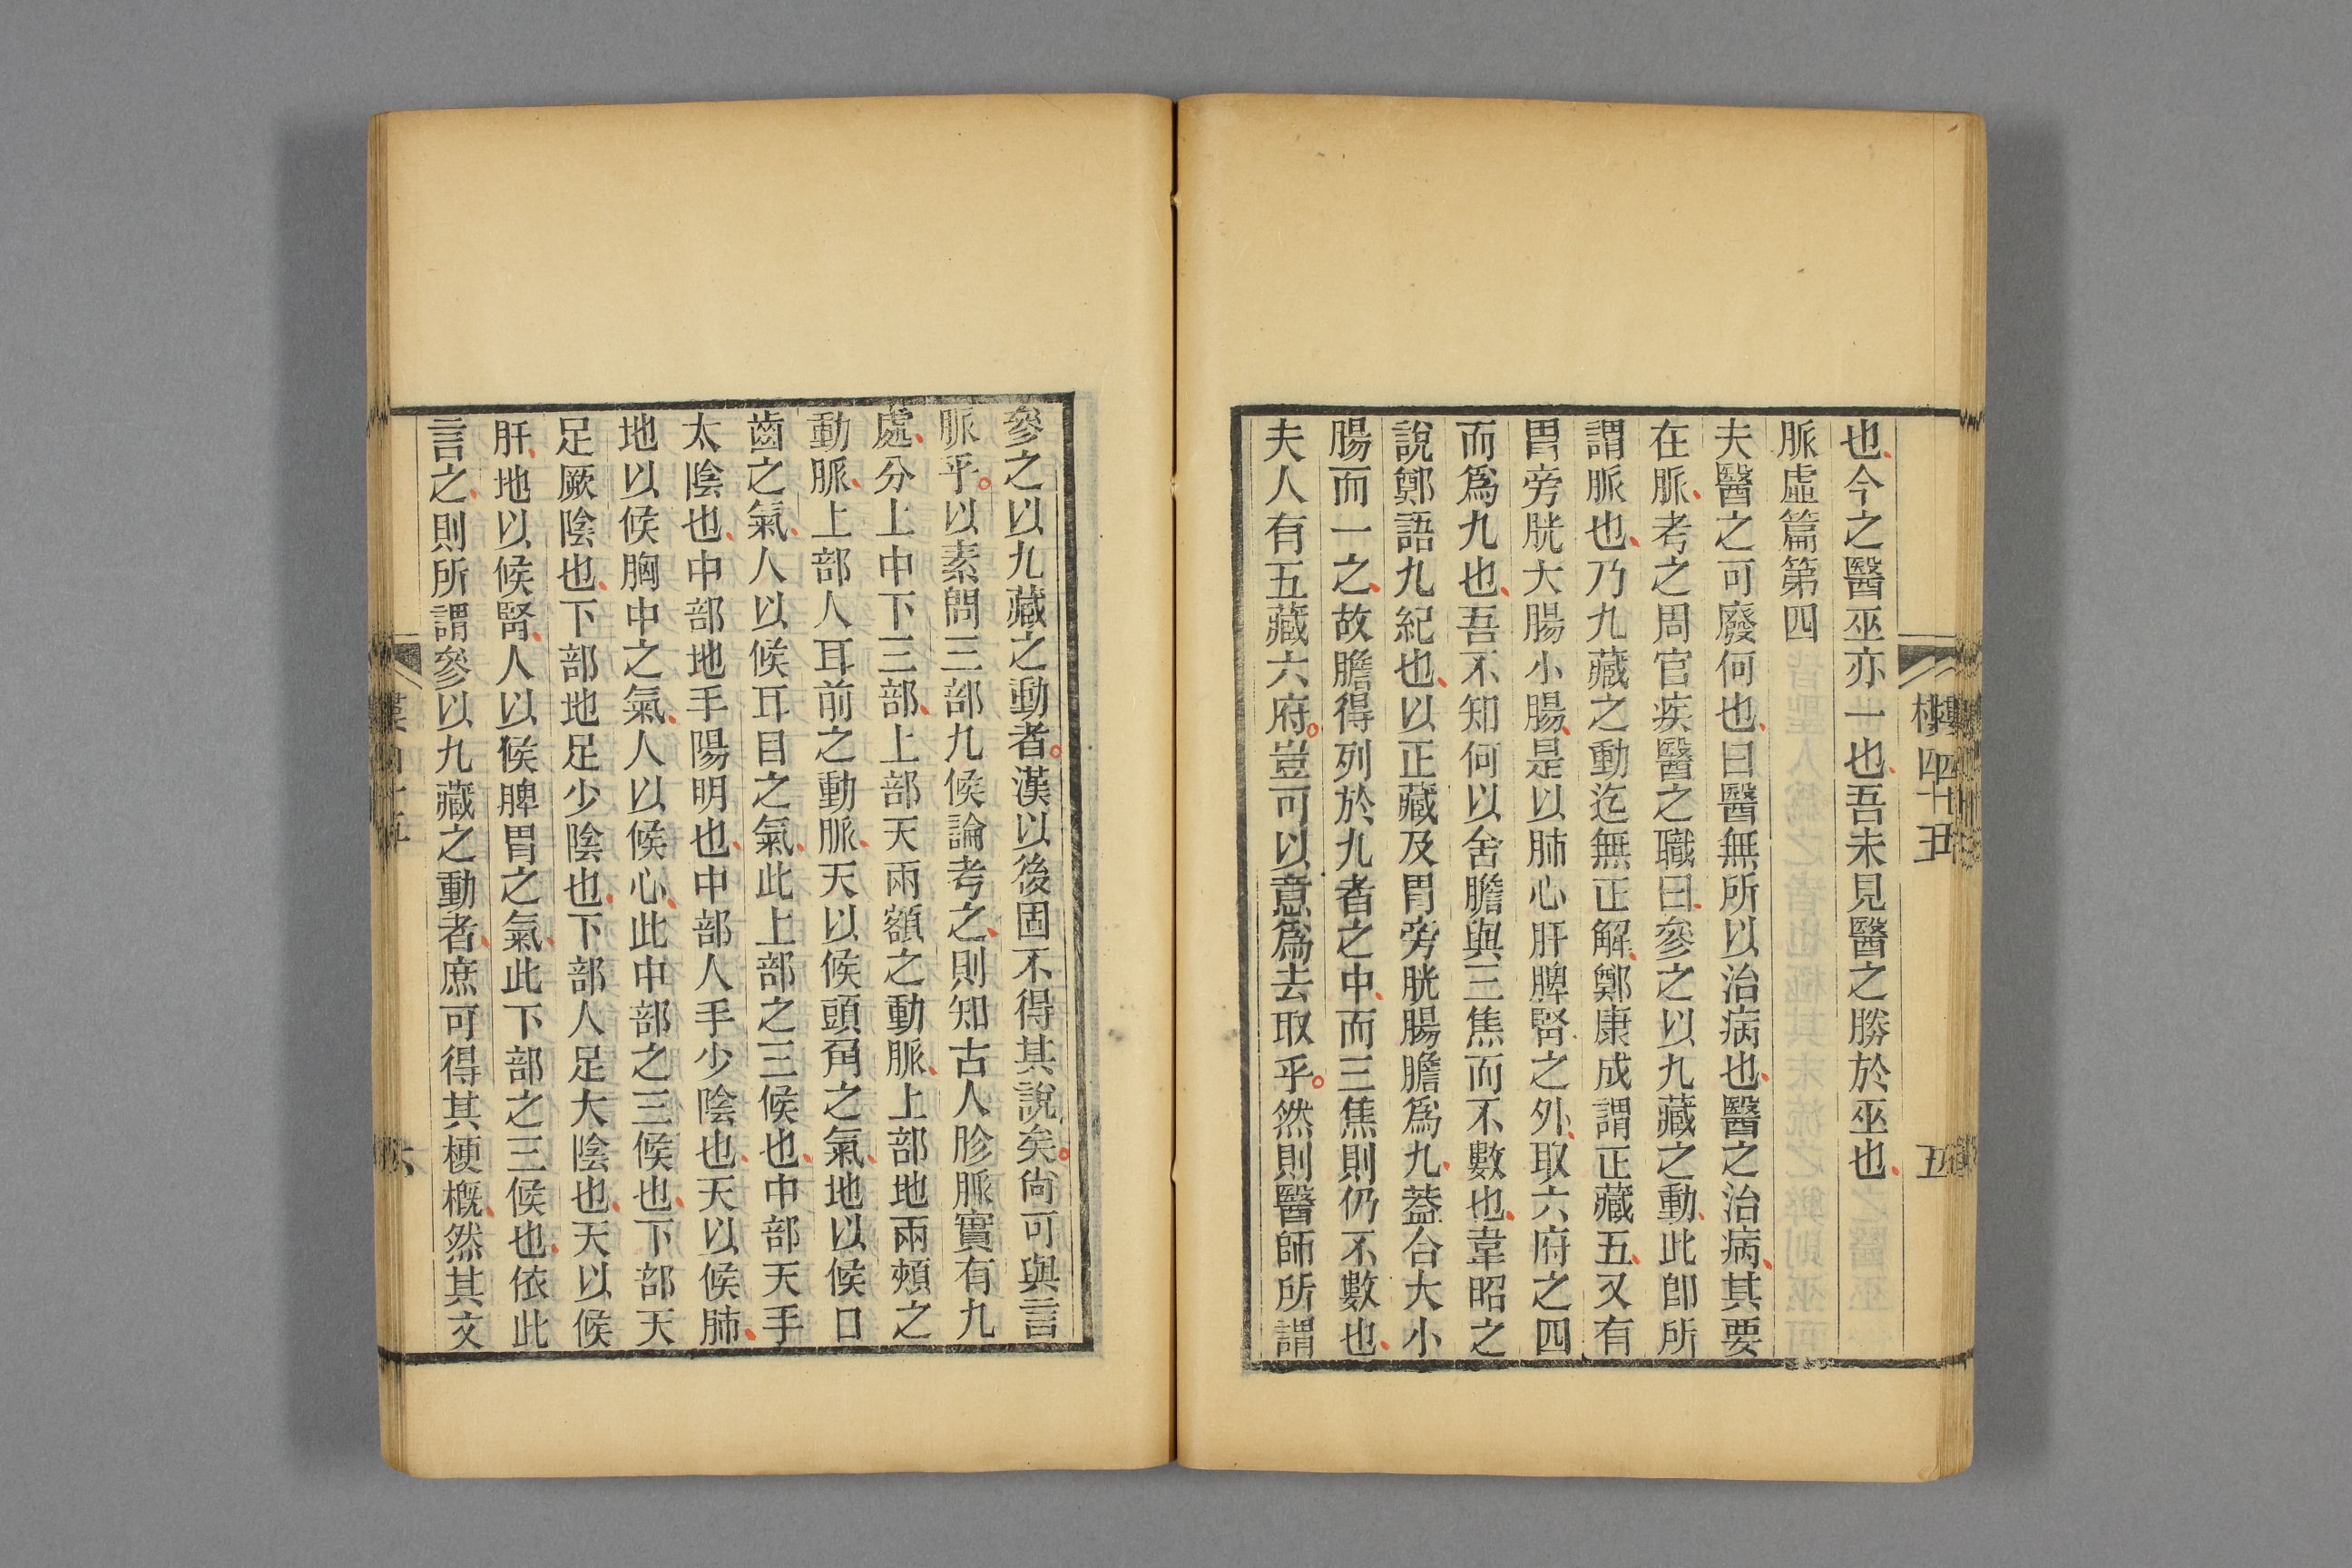 也今之醫巫亦一也吾未見醫之勝於巫也
脈虛篇第四
夫醫之可廢何也曰醫無所以治病也醫之治病其要
在脈考之周官疾醫之職曰參之以九藏之動此卽所
謂脈也乃九藏之動迄無正解鄭康成謂正藏五又有
胃旁胱大腸小腸是以肺心肝脾腎之外取六府之四
而爲九也吾不知何以舍膽與三焦而不數也韋昭之
說鄭語九紀也以正藏及胃旁胱腸膽爲九葢合大小
腸而一之故膽得列於九者之中而三焦則仍不數也
夫人有五藏六府豈可以意爲去取乎然則醫師所謂
參之以九藏之動者漢以後固不得其說矣尙可與言
脈乎以素問三部九候論考之則知古人胗脈實有九
處分上中下三部上部天兩額之動脈上部地兩頰之
動脈上部人耳前之動脈天以候頭角之氣地以候口
齒之氣人以候耳目之氣此上部之三候也中部天手
太陰也中部地手陽明也中部人手少陰也天以候肺
地以候胸中之氣人以候心此中部之三候也下部天
足厥陰也下部地足少陰也下部人足太陰也天以候
肝地以候腎人以候脾胃之氣此下部之三候也依此
言之則所謂參以九藏之動者庶可得其梗槪然其文
四十五
五
六